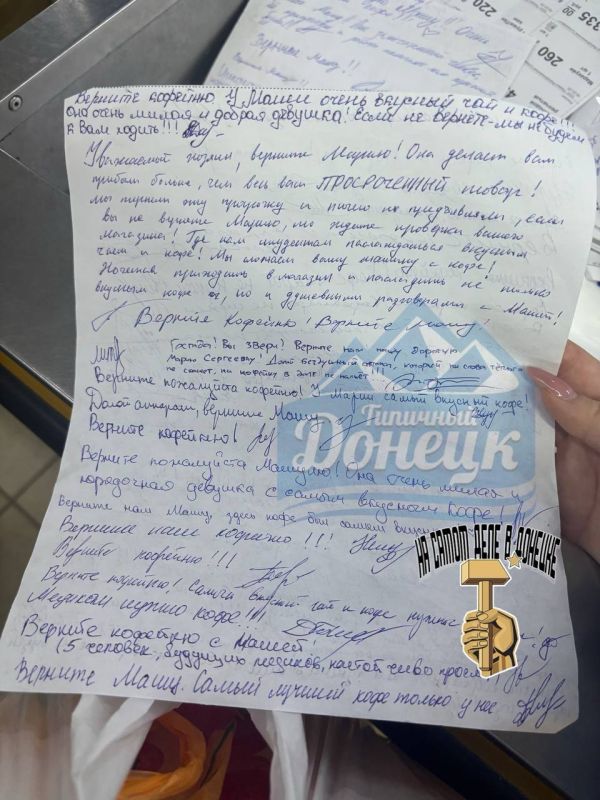 Верните кофейню. У Маши очень вкусный чай и кофе!!!
Она очень милая и добрая девушка! Если не вернете - мы не будем
к Вам ходить!!!
Уважаемый хозяин, верните Марию! Она делает вам
прибыли больше, чем весь ваш ПРОСРОЧЕННЫЙ товар!
Мы терпим эту просрочку и ничего не предъявляем, если
вы не вернете Марию, то ждите проверки вашего
магазина! Где нам студентам наслаждаться вкусным
чаем и кофе! Мы вашу с кофе!
Хочется приходить в магазин и насладиться не только
вкусным кофе но и душевными разговорами с Машей!
Верните Кофейню! Верните Машу!
Господа! Вы звери! Верните нам нашу дорогую
Марию Сергеевну! Долой бездушный автомат, который ни слова тёплого
не скажет, ни
Верните пожалуйста кофейню! У Марии самый вкусный кофе!
Долой аппарат, верните Машу
Верните кофейню!
Верните пожалуйста Машулю! Она очень милая и
порядочная девушка с самым вкусным кофе!
Верните нам Машу, здесь кофе был самым
Верните наше кофейню!!!
Верните кофейню!!!
Верните кофейню! Самый вкусный чай и кофе
Медикам нужно кофе!!!
Верните кофейню с Машей!
(5 человек, будущих медиков, настойчиво
Верните Машу. Самый лучший кофе только у нее
Типичный
Донецк
НА САМОМ ДЕЛЕ В ДОНЕЦКЕ
Верните Машу!!
220
335
260